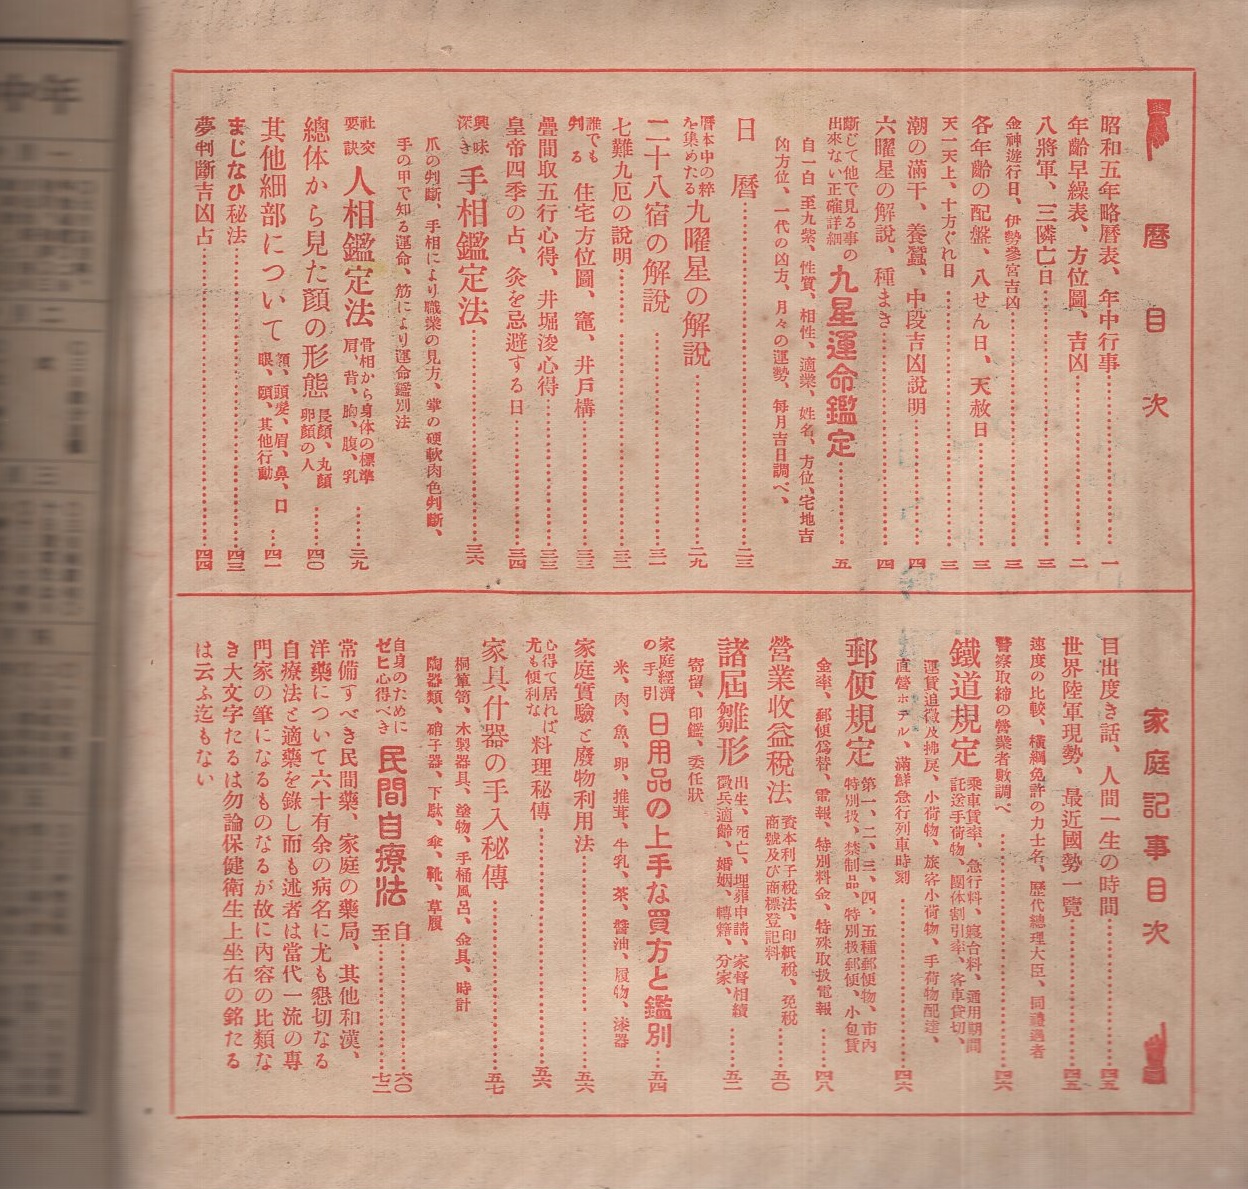 暦目次
昭和五年略暦表、年中行事……一
年齢早繰表、方位圖、吉凶……二
八將軍、三隣亡日……三
金神遊行日、伊勢參宮吉凶……三
各年齢の配盤、八せん日、天赦日……三
天一天上、十方ぐれ日……三
潮の滿干、養蠶、中段吉凶説明……四
六曜星の解説、種まき……四
斷じて他で見る事の出來ない正確詳細 九星運命鑑定……五
自一白至九紫、性質、相性、適業、姓名、方位、宅地吉
凶方位、一代の凶方、月々の運勢、毎月吉日調べ、
日暦……二三
暦本中の粹を集めたる 九曜星の解説……二九
二十八宿の解説……三一
七難九厄の説明……三二
誰でも判る 住宅方位圖、竈、井戸構……三三
疊間取五行心得、井堀浚心得……三三
皇帝四季の占、灸を忌避する日……三四
興味深き 手相鑑定法……三六
爪の判斷、手相により職業の見方、掌の硬軟肉色判斷、
手の甲で知る運命、筋により運命鑑別法
社交要訣 人相鑑定法 骨相から身体の標準 肩、背、胸、腹、乳……三九
總体から見た顔の形態 長顔、丸顔 卵顔の人……四〇
其他細部について 額、頭髮、眉、鼻、口 眼、頤、其他行動……四一
まじなひ秘法……四三
夢判斷吉凶占……四四
家庭記事目次
目出度き話、人間一生の時間……四五
世界陸軍現勢、最近國勢一覽……四五
速度の比較、橫綱免許の力士名、歴代總理大臣、同禮遇者
警察取締の營業者數調べ……四六
鐵道規定 乘車賃率、急行料、寢台料、通用期間 託送手荷物、團体割引率、客車貸切、
運賃追徴及拂戻、小荷物、旅客小荷物、手荷物配達、
直營ホテル、滿鮮急行列車時刻……四六
郵便規定 第一、二、三、四、五種郵便物、市内 特別扱、禁制品、特別扱郵便、小包賃
金率、郵便爲替、電報、特別料金、特殊取扱電報……四八
營業收益税法 資本利子税法、印紙税、免税 商號及び商標登記料……五〇
諸屆雛形 出生、死亡、埋葬申請、家督相續 徴兵適齡、婚姻、轉籍、分家、……五二
寄留、印鑑、委任狀
家庭經濟の手引 日用品の上手な買方と鑑別……五四
米、肉、魚、卵、推茸、牛乳、茶、醬油、履物、漆器
家庭實驗と廢物利用法……五六
心得て居れば尤も便利な 料理秘傳……五六
家具什器の手入秘傳……五七
桐簞笥、木製器具、塗物、手桶風呂、金具、時計
陶器類、硝子器、下駄、傘、靴、草履
自身のためにゼヒ心得べき 民間自療法 自……六〇 至……七二
常備すべき民間藥、家庭の藥局、其他和漢、
洋藥について六十有余の病名に尤も懇切なる
自療法と適藥を錄し而も述者は當代一流の專
門家の筆になるものなるが故に内容の比類な
き大文字たるは勿論保健衛生上坐右の銘たる
は云ふ迄もない